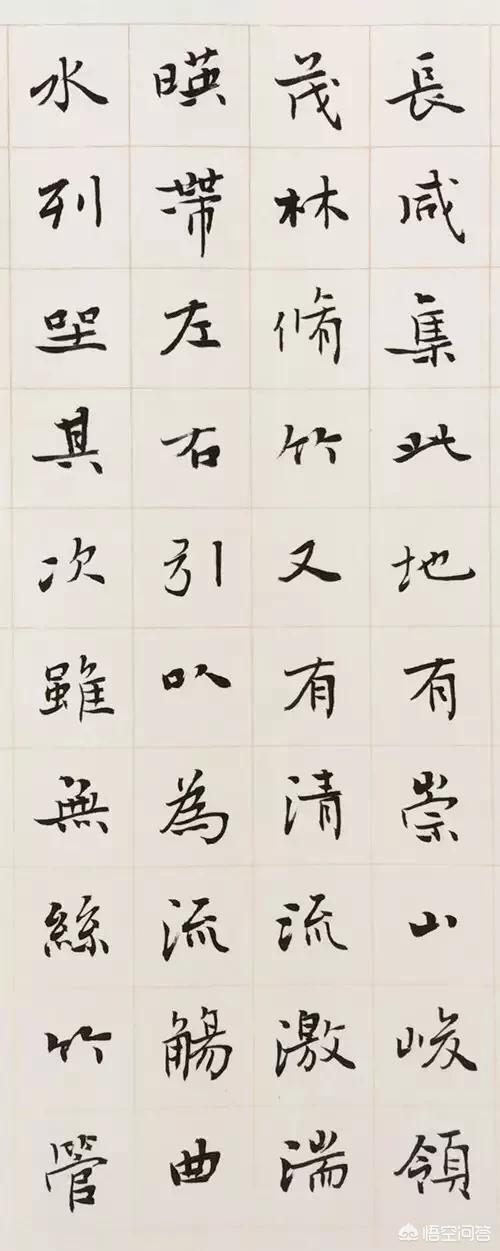 長咸集此地有崇山峻領
茂林脩竹又有清流激湍
暎帶左右引以為流觴曲
水列坐其次雖無絲竹管
悟空问答